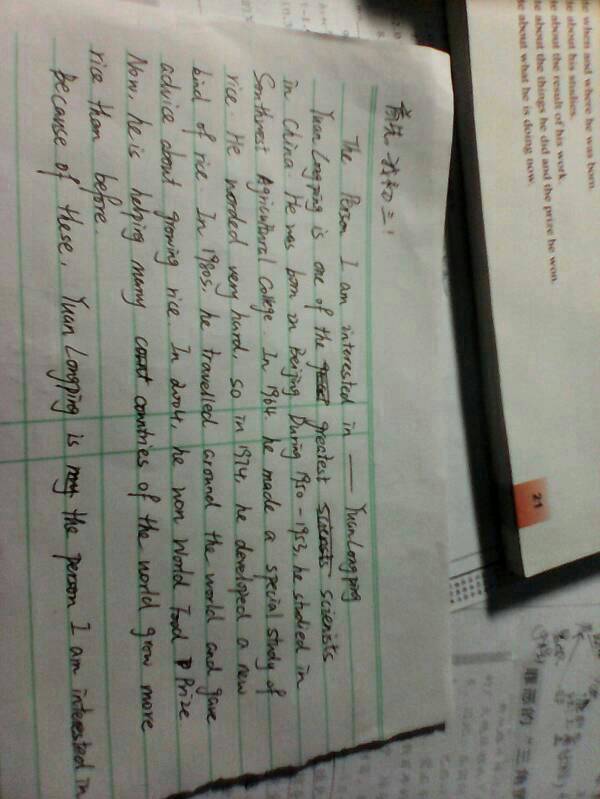 The Person I am interested in —— Yuan Longping
Yuan Longping is one of the greatest scienists
in China. He was born in Beijing. During 1950-1953, he studied in
Southwest Agricultural College. In 1964, he made a special study of
rice. He worked very hard, so in 1974, he developed a new
kind of rice. In 1980s, he travelled around the world and gave
advice about growing rice. In 2004, he won World Food Prize
Now, he is helping many countries of the world grow more
rice than before.
Because of these, Yuan Longping is the person I am interested in
te when and where he was born.
te about his studies.
te about the result of his work.
te about the things he did and the prize he won.
te about what he is doing now.
21